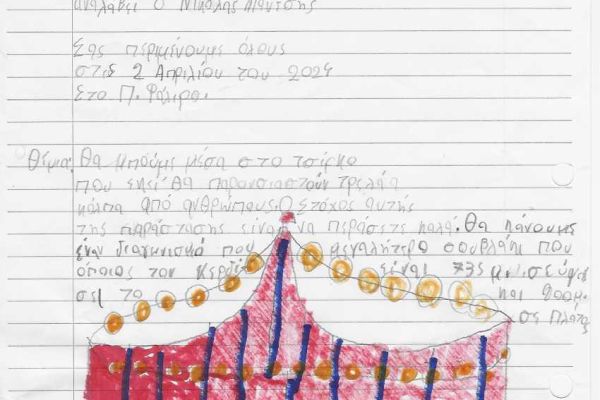 αναλάβει ο Νικόλας Μάντσης
Σας περιμένουμε όλους
στις 2 Απριλίου του 2024
Στο Π. Φάληρο.
Θέμα: Θα μπούμε μέσα στο τσίρκο
που εκεί θα παρουσιαστούν τρελά
κόλπα από ανθρώπους. Ο στόχος αυτής
της παράστασης είναι να περάσετε καλά. Θα κάνουμε
έναν διαγωνισμό που μεγαλήτερο σουβλάκι που
όποιος τον κερδί είναι 735 μ. σε ύψος
σει το και 900μ.
σε πλάτος